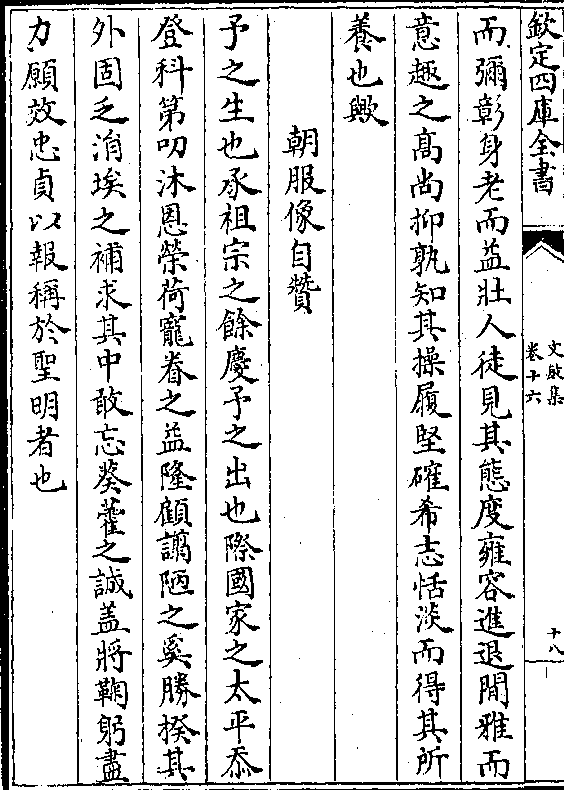 欽定四庫全書
文敏集
卷十六
十八
而彌彰身老而益壯人徒見其態度雍容進退閒雅而
意趣之髙尚抑孰知其操履堅確希志恬淡而得其所
養也歟
朝服像自贊
予之生也承祖宗之餘慶予之出也際國家之太平忝
登科第叨沐恩榮荷寵眷之益隆顧譾陋之奚勝揆其
外固乏涓埃之補求其中敢忘葵藿之誠盖將鞠躬盡
力願效忠貞以報稱於聖明者也